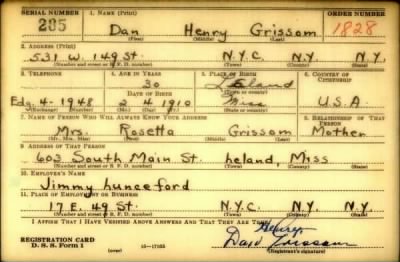 SERIAL NUMBER 1. NAME (Print) ORDER NUMBER
285 Dan Henry Grissom 1828
(First) (Middle) (Last)
2. ADDRESS (Print)
531 W. 149 St. N.Y.C. N.Y. N.Y.
(Number and street or R. F. D. number) (Town) (County) (State)
3. TELEPHONE 4. AGE IN YEARS 5. PLACE OF BIRTH 6. COUNTRY OF CITIZENSHIP
30
DATE OF BIRTH (Town or county)
Edg. 4-1948 2 4 1910 Miss U.S.A.
(Exchange) (Number) (Mo.) (Day) (Yr.) (State or country)
7. NAME OF PERSON WHO WILL ALWAYS KNOW YOUR ADDRESS 8. RELATIONSHIP OF THAT PERSON
Mrs. Rosetta Grissom Mother
(Mr., Mrs., Miss) (First) (Middle) (Last)
9. ADDRESS OF THAT PERSON
603 South Main St. heland, Miss
(Number and street or R. F. D. number) (Town) (County) (State)
10. EMPLOYER'S NAME
Jimmy Lunceford
11. PLACE OF EMPLOYMENT OR BUSINESS
17 E. 49 St. N.Y.C. N.Y. N.Y.
(Number and street or R. F. D. number) (Town) (County) (State)
I AFFIRM THAT I HAVE VERIFIED ABOVE ANSWERS AND THAT THEY ARE TRUE.
Henry
REGISTRATION CARD Dan Grissom
D. S. S. Form 1 (over) 16—17105 (Registrant's signature)